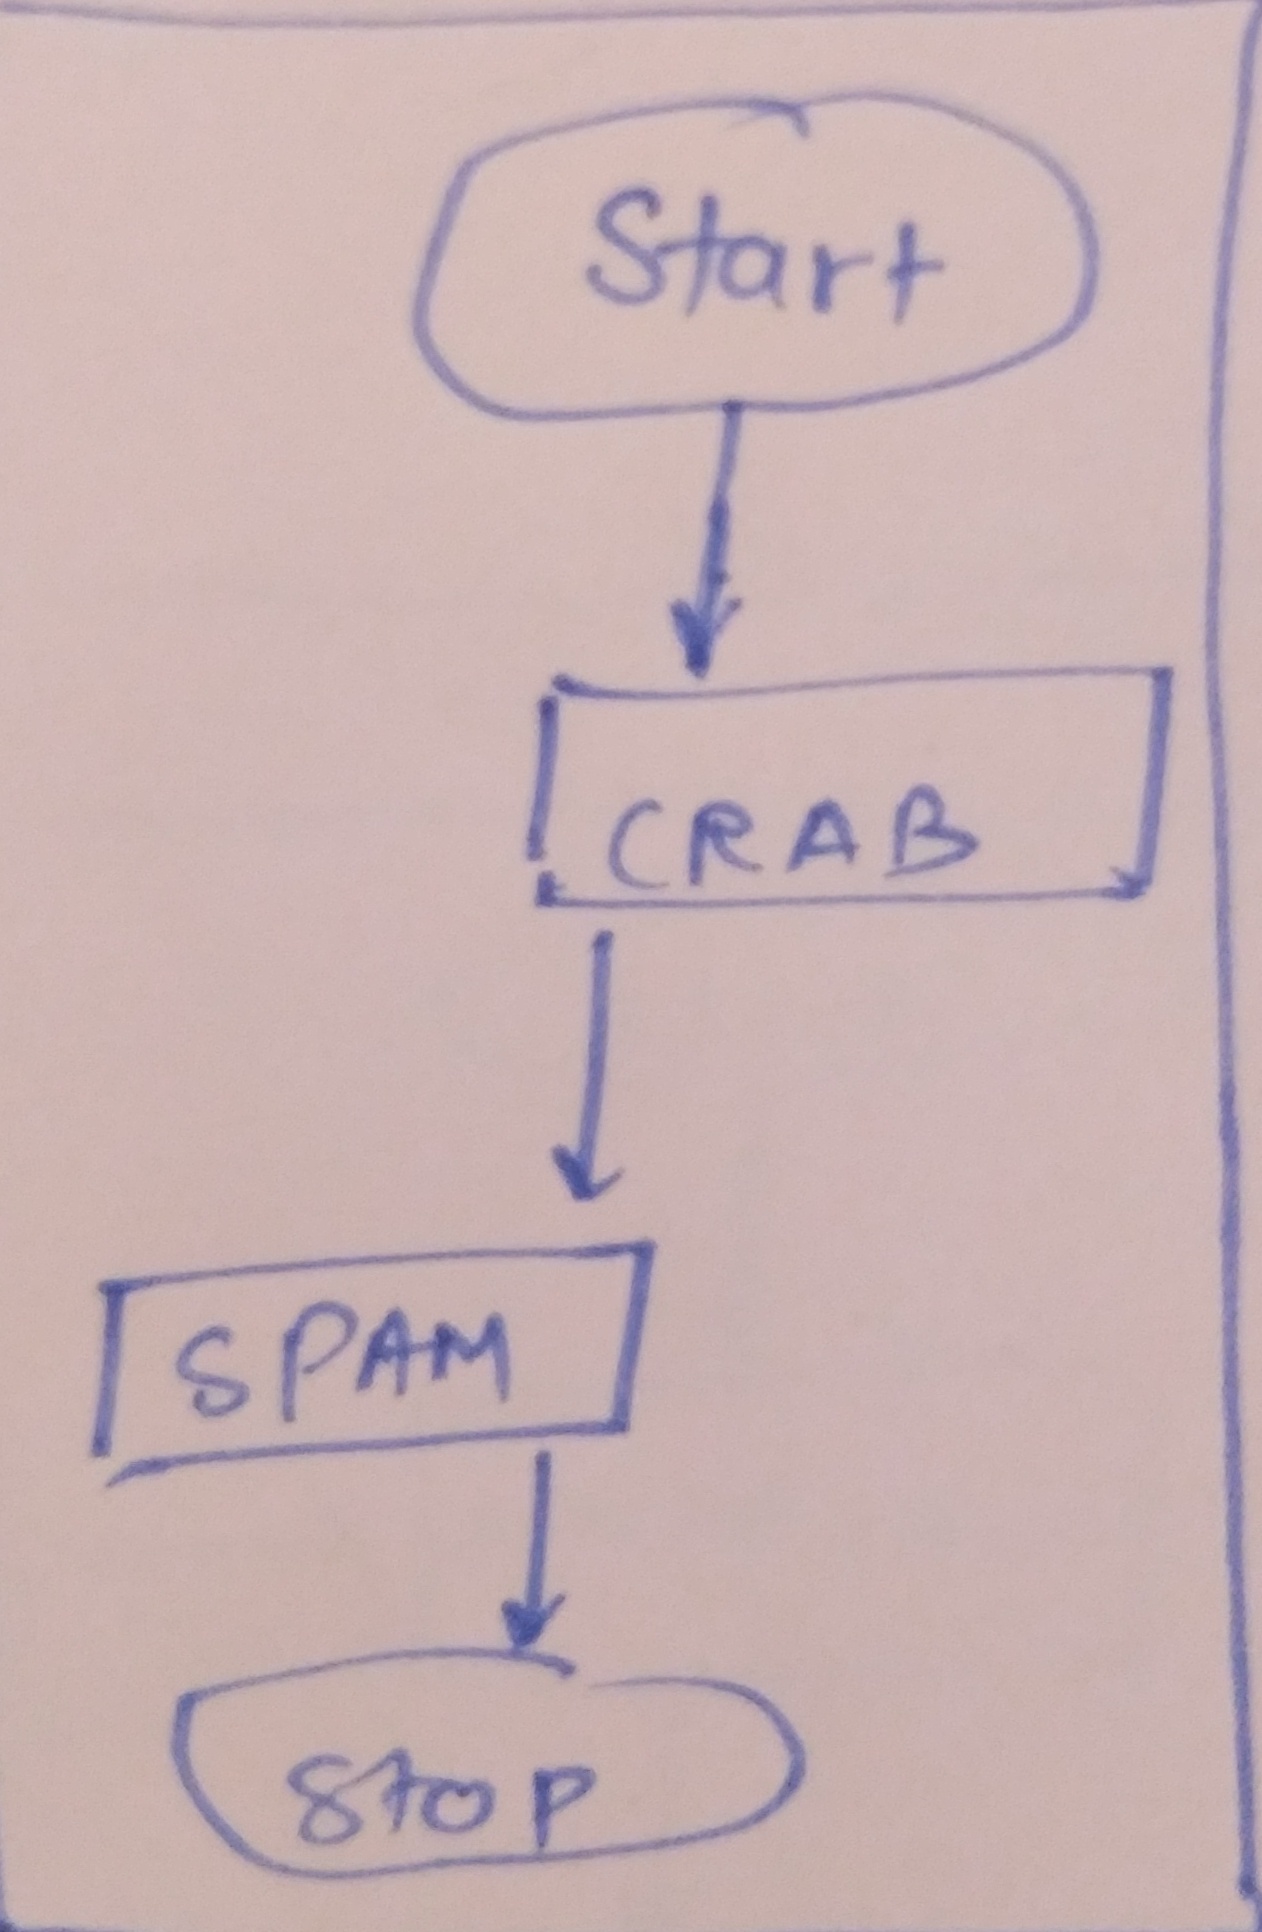 Start
CRAB
SPAM
Stop